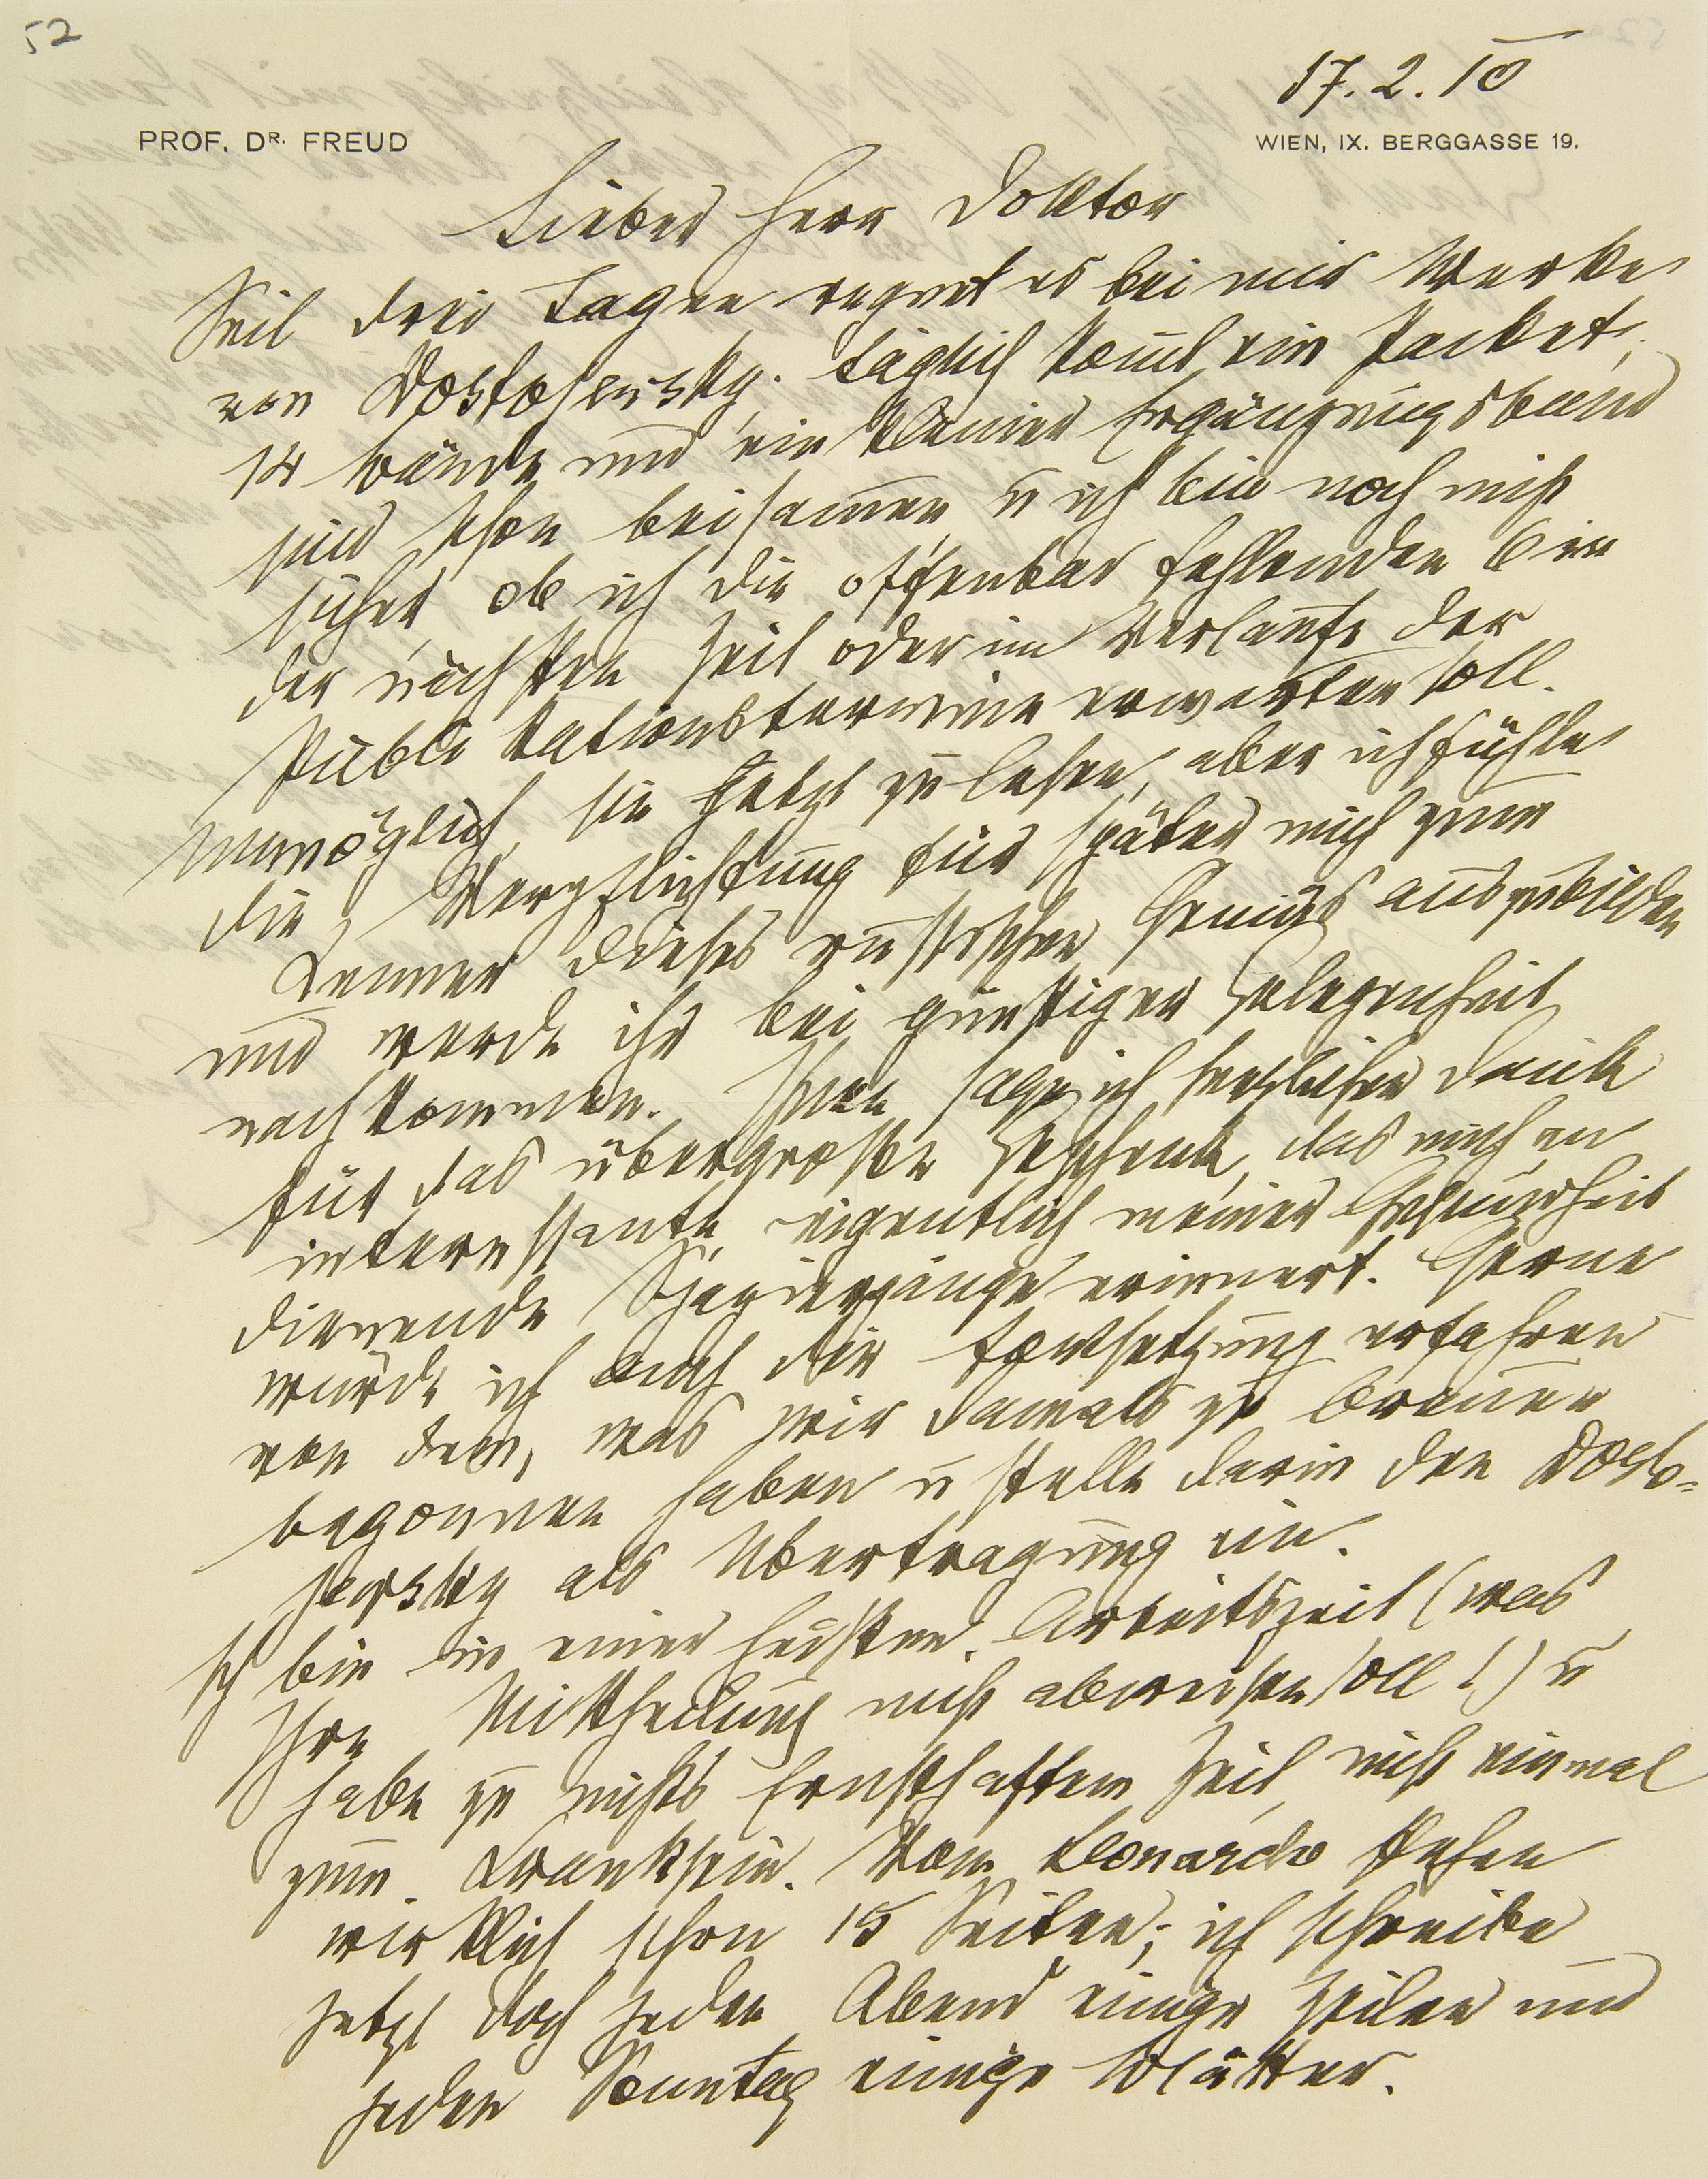 52
17. 2. 10
PROF. DR. FREUD
WIEN, IX. BERGGASSE 19.
Lieber Herr Doktor
Seit drei Tagen regnet es bei mir Werke
von Dostojewsky. Täglich kom̅t ein Packet,
14 Bände und ein kleiner Ergänzungsband
sind schon beisam̅en u ich bin noch nicht
sicher, ob ich die offenbar fehlenden 6 in
der nächsten Zeit oder im Verlaufe der
Publikationstermine erwarten soll.
Unmöglich, sie jetzt zu lesen, aber ich fühle
die Verpflichtung für später mich zum
Kenner dieses russischen Genius auszubilden
und werde ihr bei günstiger Gelegenheit
nachkommen. Ihnen sage ich herzlichen Dank
für das übergroße Geschenk, das mich an
interessante, eigentlich meiner Gesundheit
dienende Spaziergänge erinnert. Gerne
würde ich auch die Fortsetzung erfahren
von dem, was wir damals zu brauen
begonnen haben u stelle darin den Dosto-
jewsky als Übertragung ein.
Ich bin in einer Arbeitszeit (was
Ihre Mittheilung nicht abweisen soll!) u
habe zu nichts Ernsthaftem Zeit, nicht einmal
zum Kranksein. Vom Leonardo stehen
wirklich schon 15 Seiten; ich schreibe
jetzt doch jeden Abend einige Zeilen und
jeden Sonntag einige Blätter.